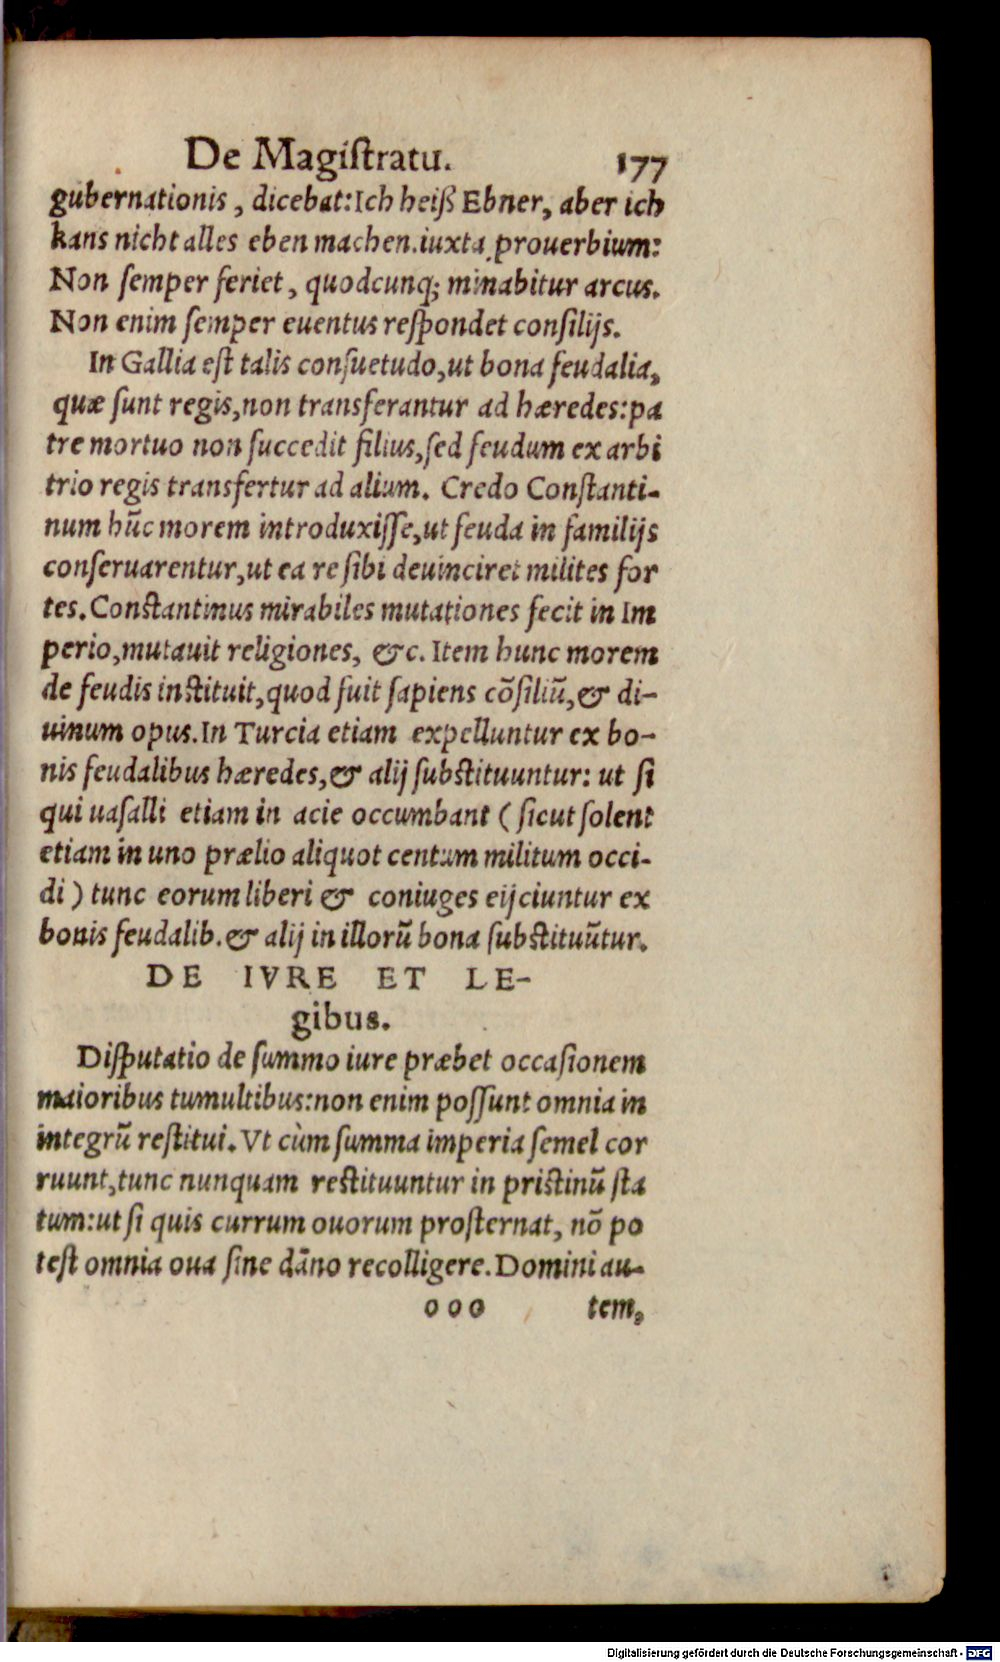 De Magiſtratu. 177
gubernationis, dicebat: Ich heiß Ebner, aber ich
kans nicht alles eben machen. iuxta prouerbium:
Non ſemper feriet, quodcunq; minabitur arcus.
Non enim ſemper euentus reſpondet conſilijs.
In Gallia eſt talis conſuetudo, ut bona feudalia,
quæ ſunt regis, non transferantur ad hæredes: pa
tre mortuo non ſuccedit filius, ſed feudum ex arbi
trio regis transfertur ad alium. Credo Conſtanti-
num hūc morem introduxiſſe, ut feuda in familijs
conſeruarentur, ut ea re ſibi deuinciret milites for
tes. Conſtantinus mirabiles mutationes fecit in Im
perio, mutauit religiones, &c. Item hunc morem
de feudis inſtituit, quod fuit ſapiens cōſiliū, & di-
uinum opus. In Turcia etiam expelluntur ex bo-
nis feudalibus hæredes, & alij ſubſtituuntur: ut ſi
qui uaſalli etiam in acie occumbant (ſicut ſolent
etiam in uno prælio aliquot centum militum occi-
di) tunc eorum liberi & coniuges eijciuntur ex
bonis feudalib. & alij in illorū bona ſubſtituūtur.
DE IVRE ET LE-
gibus.
Diſputatio de ſummo iure præbet occaſionem
maioribus tumultibus: non enim poſſunt omnia in
integrū reſtitui. Vt cùm ſumma imperia ſemel cor
ruunt, tunc nunquam reſtituuntur in priſtinū ſta
tum: ut ſi quis currum ouorum proſternat, nō po
teſt omnia oua ſine dāno recolligere. Domini au-
ooo tem,
Digitalisierung gefördert durch die Deutsche Forschungsgemeinschaft - DFG